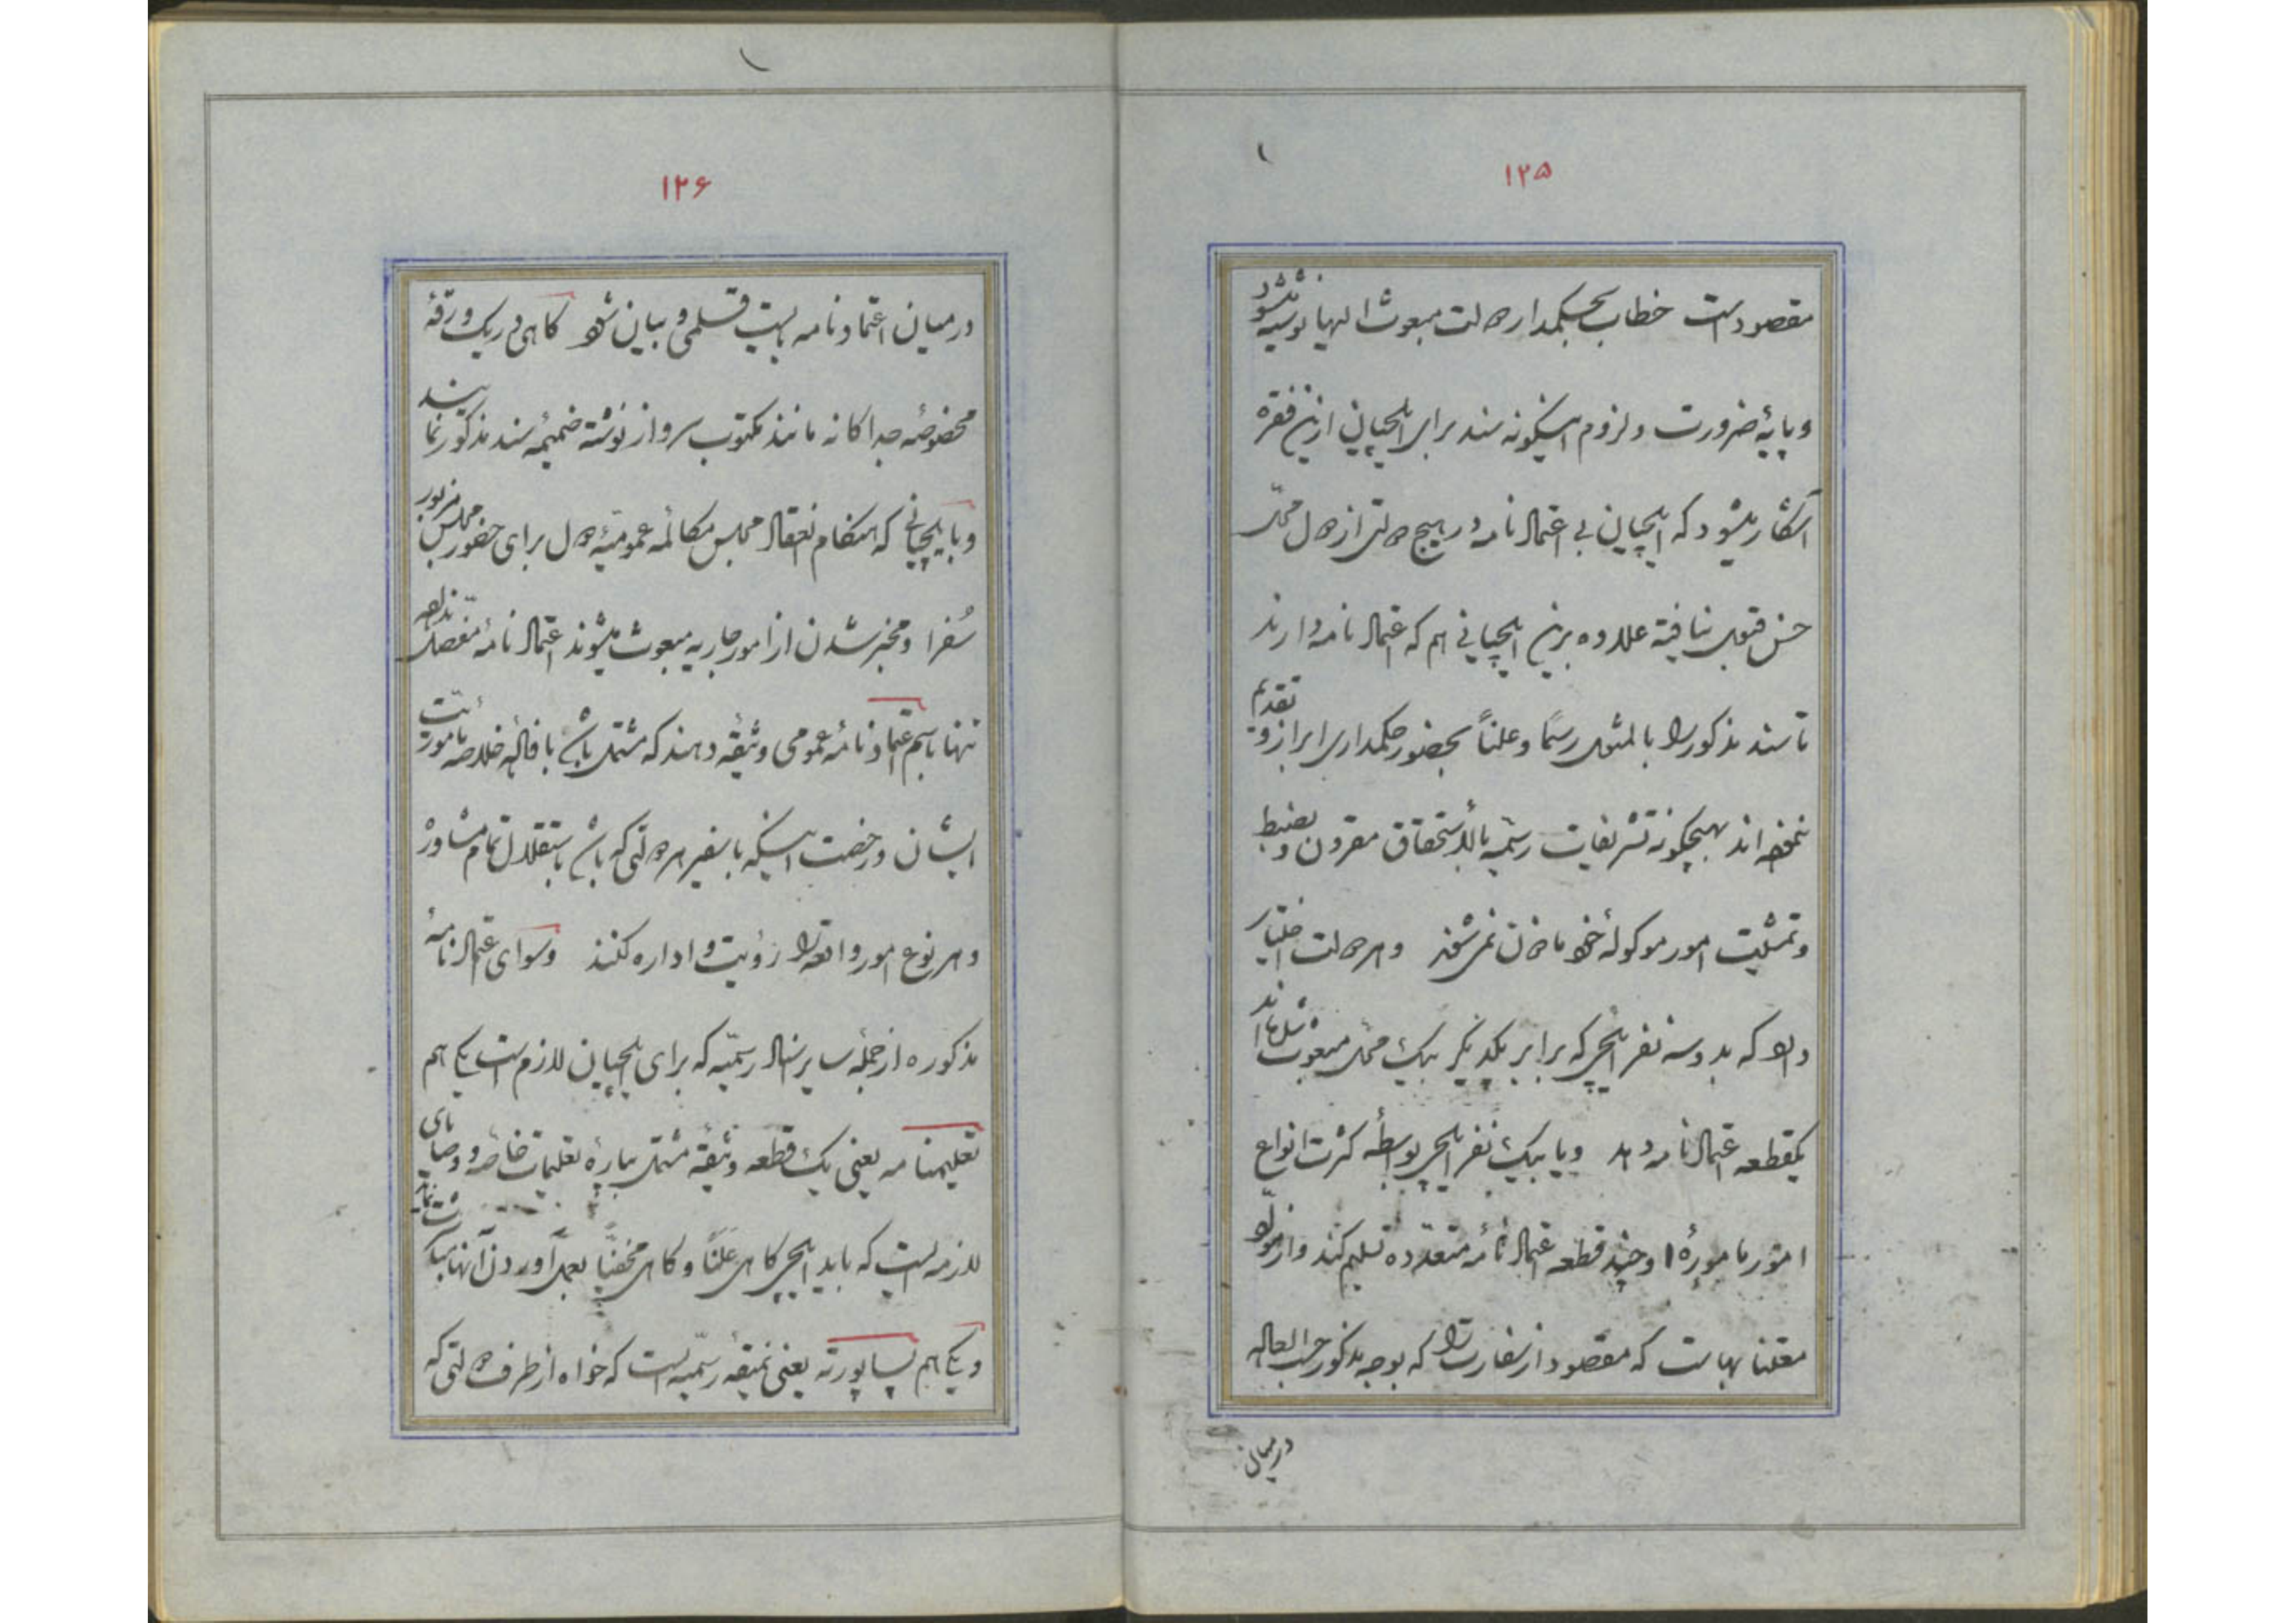 ۱۲۵
مقصود است خطاب بحکمدار دولت مبعوث الیها نوشته میشود
و پایهٔ ضرورت و لزوم اینگونه سند برای ایلچیان ازین فقره
آشکار میشود که ایلچیان بی اعتمادنامه در هیچ دولتی از دول محل
حسن قبول نیافته علاوه برین ایلچیانی هم که اعتمادنامه دارند
تا سند مذکور را بالمثول رسماً و علناً بحضور حکمداری ابراز و تقدیم
ننموده اند بهیچگونه تشریفات رسمیه بالاستحقاق مقرون و بضبط
و تمشیت امور موکولهٔ خود ماذون نمی شوند و هر دولت اختیار
دارد که بدو سه نفر ایلچی که برابر یکدیگر بیک محل مبعوث شده اند
یکقطعه اعتمادنامه دهد و یا بیک نفر ایلچی بواسطهٔ کثرت انواع
امور مامورهٔ او چند قطعه اعتمادنامهٔ متعدده تسلیم کند و از مواد
معتنا بهاست که مقصود از سفارت را که بوجه مذکور حسب العاده
در میان
۱۲۶
در میان اعتمادنامه بایست قلمی و بیان شود گاهی در یک ورقهٔ
مخصوصهٔ جداگانه مانند مکتوب سرواز نوشته ضمیمهٔ سند مذکور نمایند
و با ایلچیانی که هنگام انعقاد مجلس مکالمهٔ عمومیهٔ دول برای حضور مجلس مزبور
سُفرا و مخبر شدن از امور جاریه مبعوث میشوند اعتمادنامهٔ مفصل نداده
تنها باسم اعتمادنامهٔ عمومی وثیقه دهند که مشتمل باشد بافادهٔ خلاصهٔ ماموریت
ایشان و رخصت اینکه با سفیر هر دولتی که باشد باستقلال تمام مشاوره
و هر نوع امور واقعه را رؤیت و اداره کنند و سوای اعتمادنامهٔ
مذکوره از جملهٔ سایر اسناد رسمیه که برای ایلچیان لازم است یکی هم
تعلیمنامه یعنی یک قطعه وثیقه مشتمل بپارهٔ تعلیمات خاصه و وصایای
لازمه است که باید ایلچی گاهی علناً و گاهی مخفیاً بعمل آوردن آنها مباشرت نماید
و یکی هم پساپورته یعنی نمیقهٔ رسمیه است که خواه از طرف دولتی که